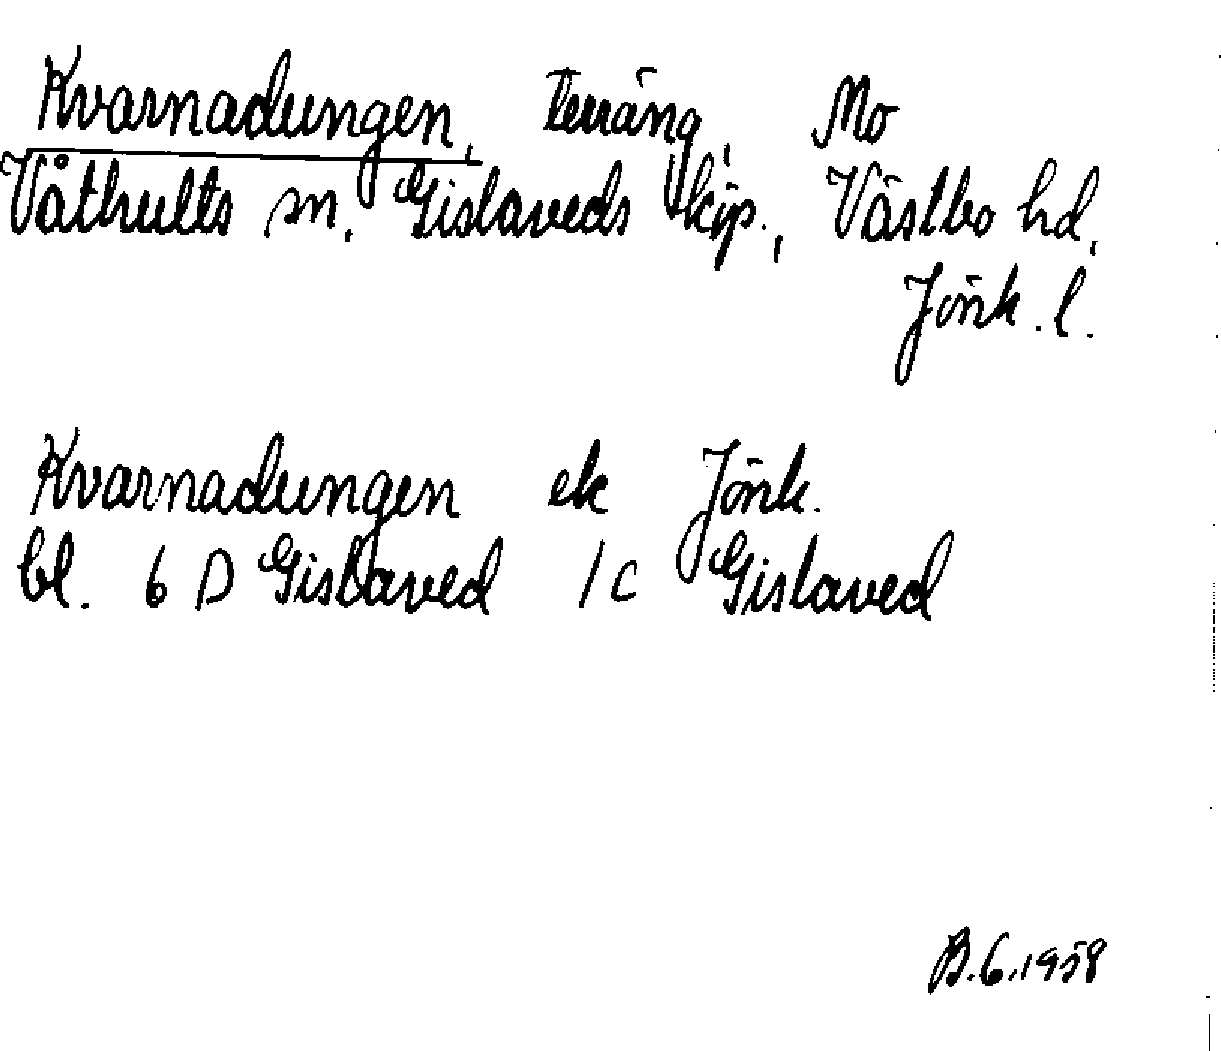 Kvarnadungen, terräng, Mo
Våthults sn, Gislaveds köp., Västbo hd,
Jönk. l.
Kvarnadungen ek Jönk.
bl. 6 D Gislaved 1 c Gislaved
B.6.1958